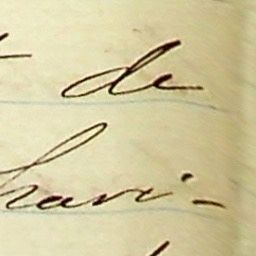 de
havi-